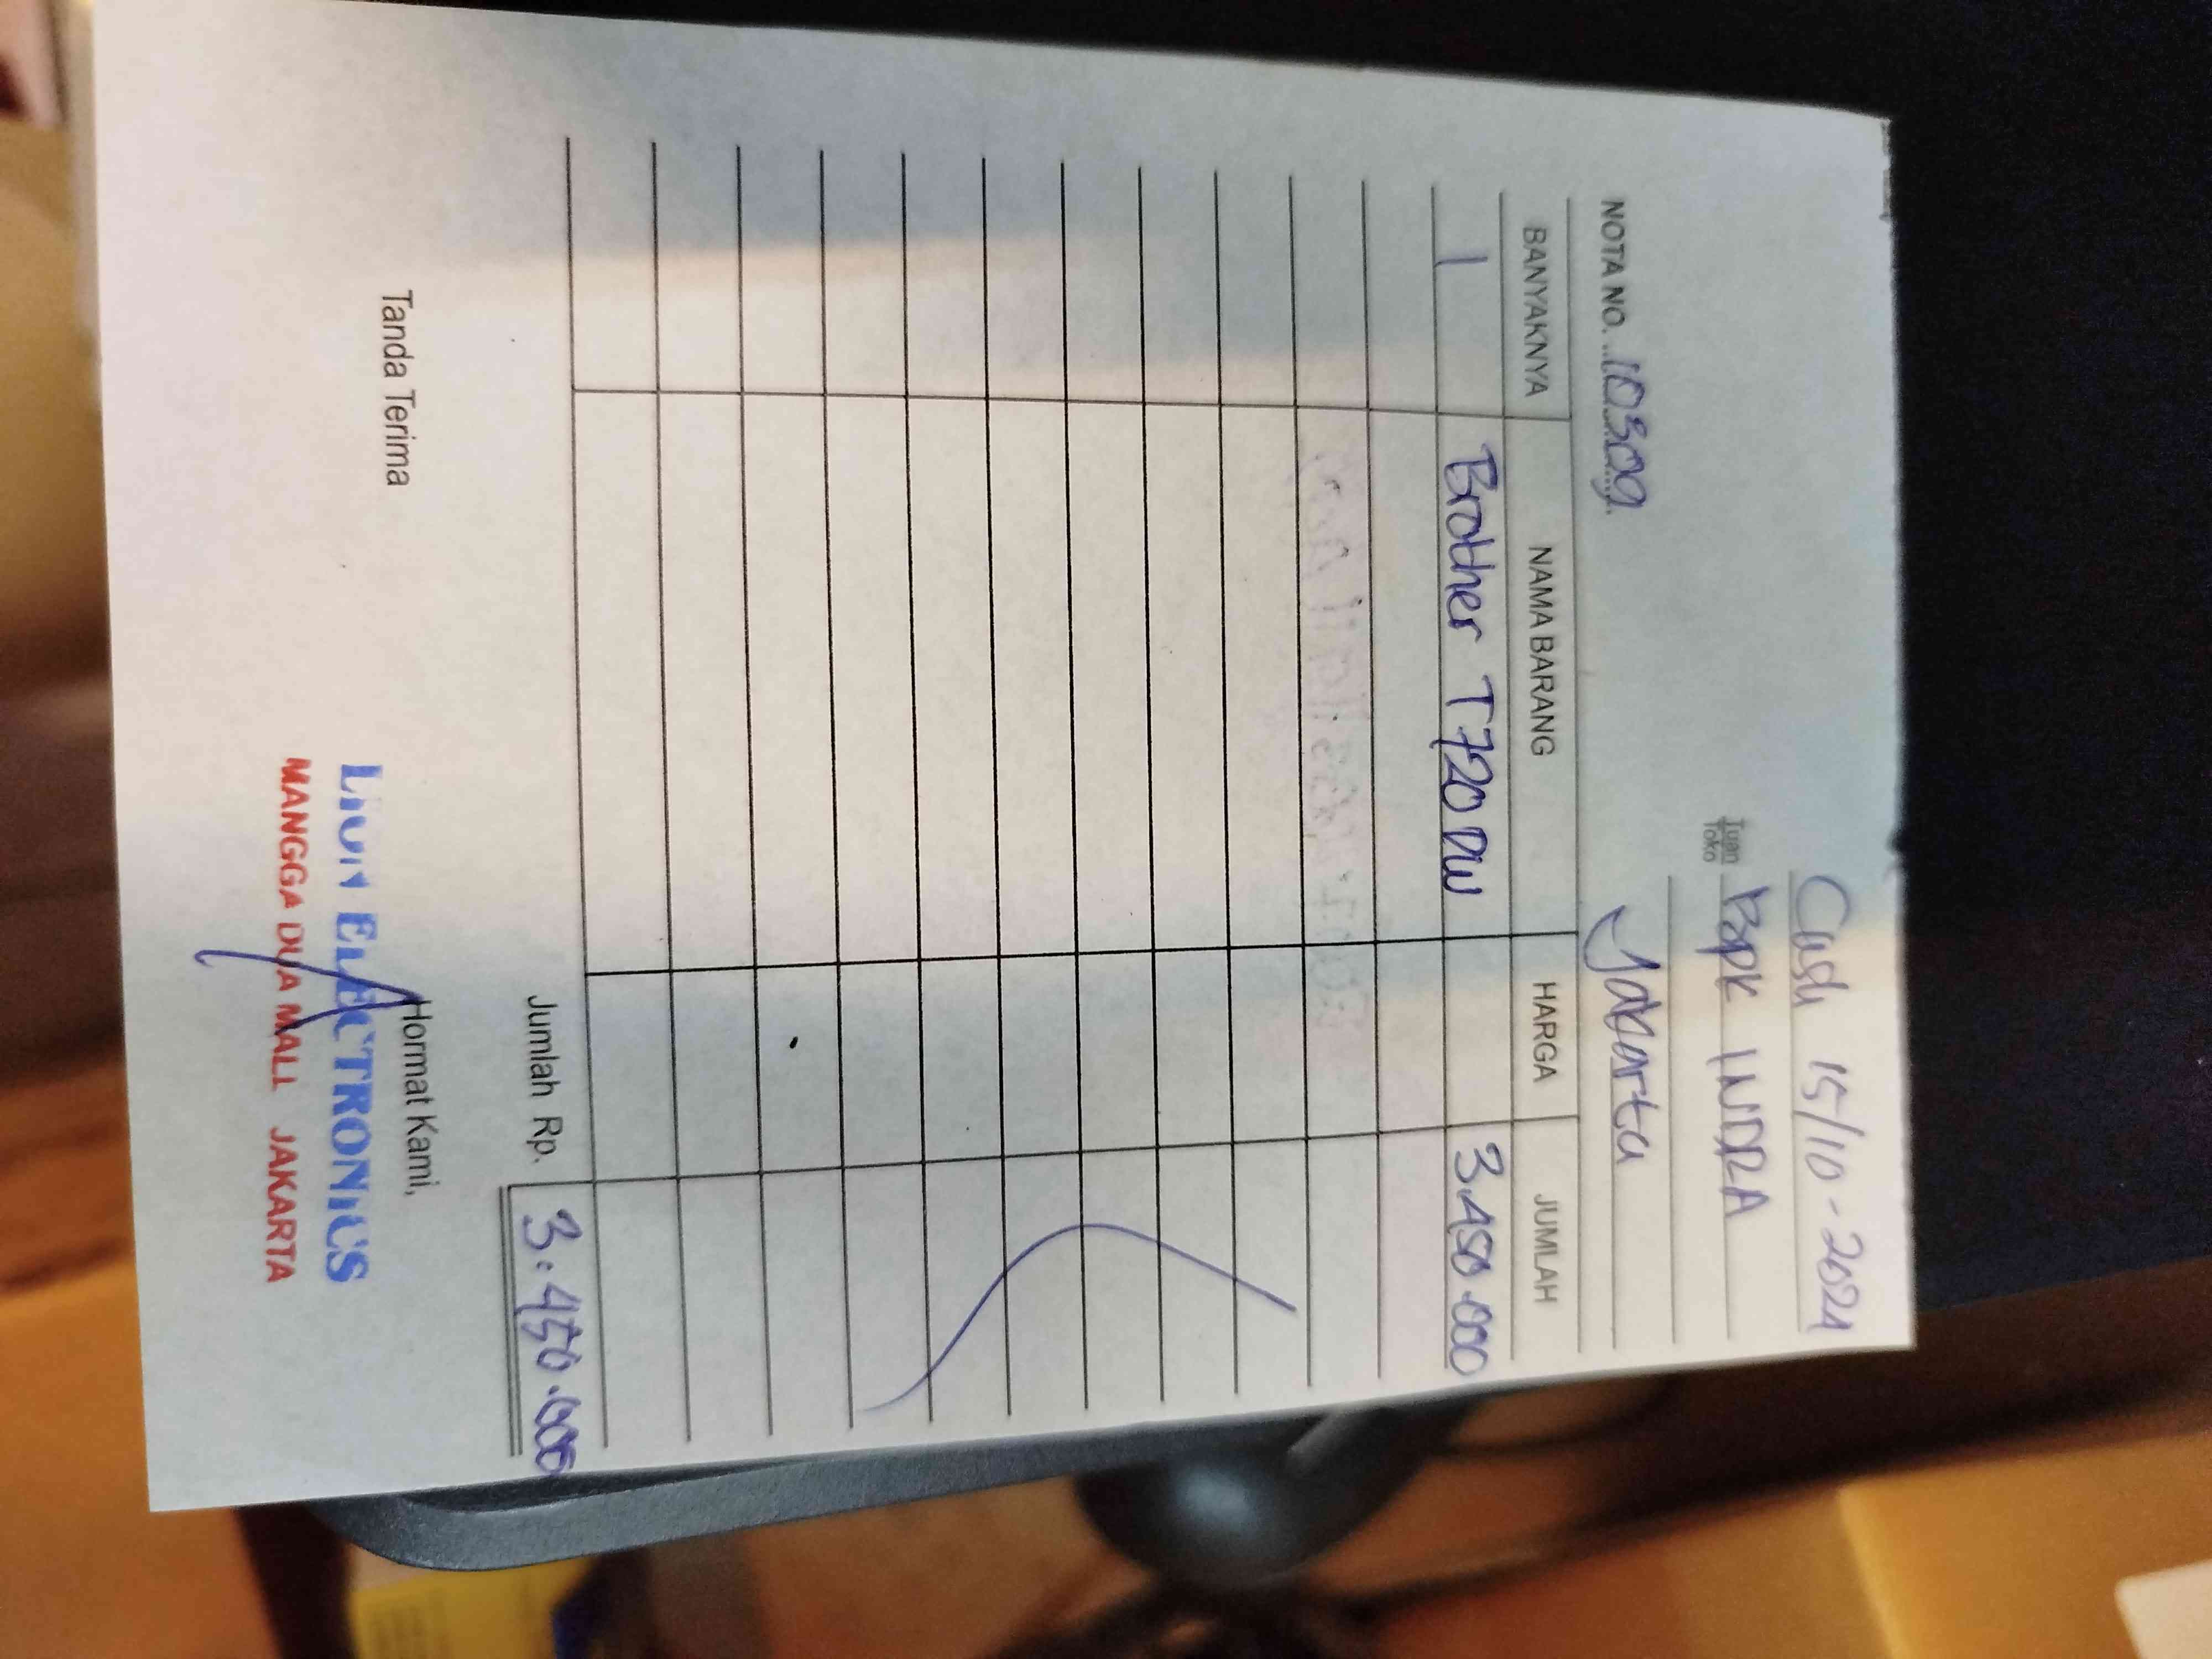 Cash 15/10-2024
Tuan
Toko
Bpk INDRA
Jakarta
NOTA NO. 10309
BANYAKNYA NAMA BARANG HARGA JUMLAH
1 Brother T720DW 3.450.000
Jumlah Rp. 3.450.000
Tanda Terima Hormat Kami,
LION ELECTRONICS
MANGGA DUA MALL JAKARTA